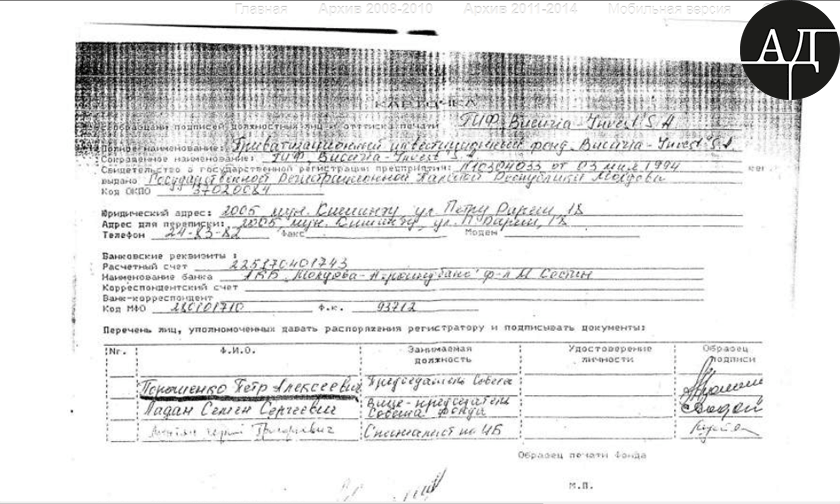 Главная Архив 2008-2010 Архив 2011-2014 Мобильная версия
АД
КАРТОЧКА
с образцами подписей должностных лиц и оттиска печати ПИФ "Bucuria-Invest" S.A.
Полное наименование: Приватизационный инвестиционный фонд "Bucuria-Invest" S.A.
Сокращенное наименование: ПИФ "Bucuria-Invest" S.A.
Свидетельство о государственной регистрации предприятия: от 03 мая 1994
выдано Государственной Регистрационной Палатой Республики Молдова
Код ОКПО 37020084
Юридический адрес: 2005 мун. Кишинэу ул. Петру Рареш, 18
Адрес для переписки: 2005, мун. Кишинэу, ул. П. Рареш, 18
Телефон 24-83-82 Факс Модем
Банковские реквизиты :
Расчетный счет 225170401743
Наименование банка АКБ "Молдова-Агроиндбанк" ф-л М.
Корреспондентский счет
Банк-корреспондент
Код МФО 280101710 Ф.к. 93712
Перечень лиц, уполномоченных давать распоряжения регистратору и подписывать документы:
Nr. Ф.И.О. Занимаемая должность Удостоверение личности Образец подписи
Порошенко Петр Алексеевич Председатель Совета
Ладан Семен Сергеевич Вице-председатель Совета Фонда
Григорьевич Специалист по ЦБ
Образец печати Фонда
М.П.